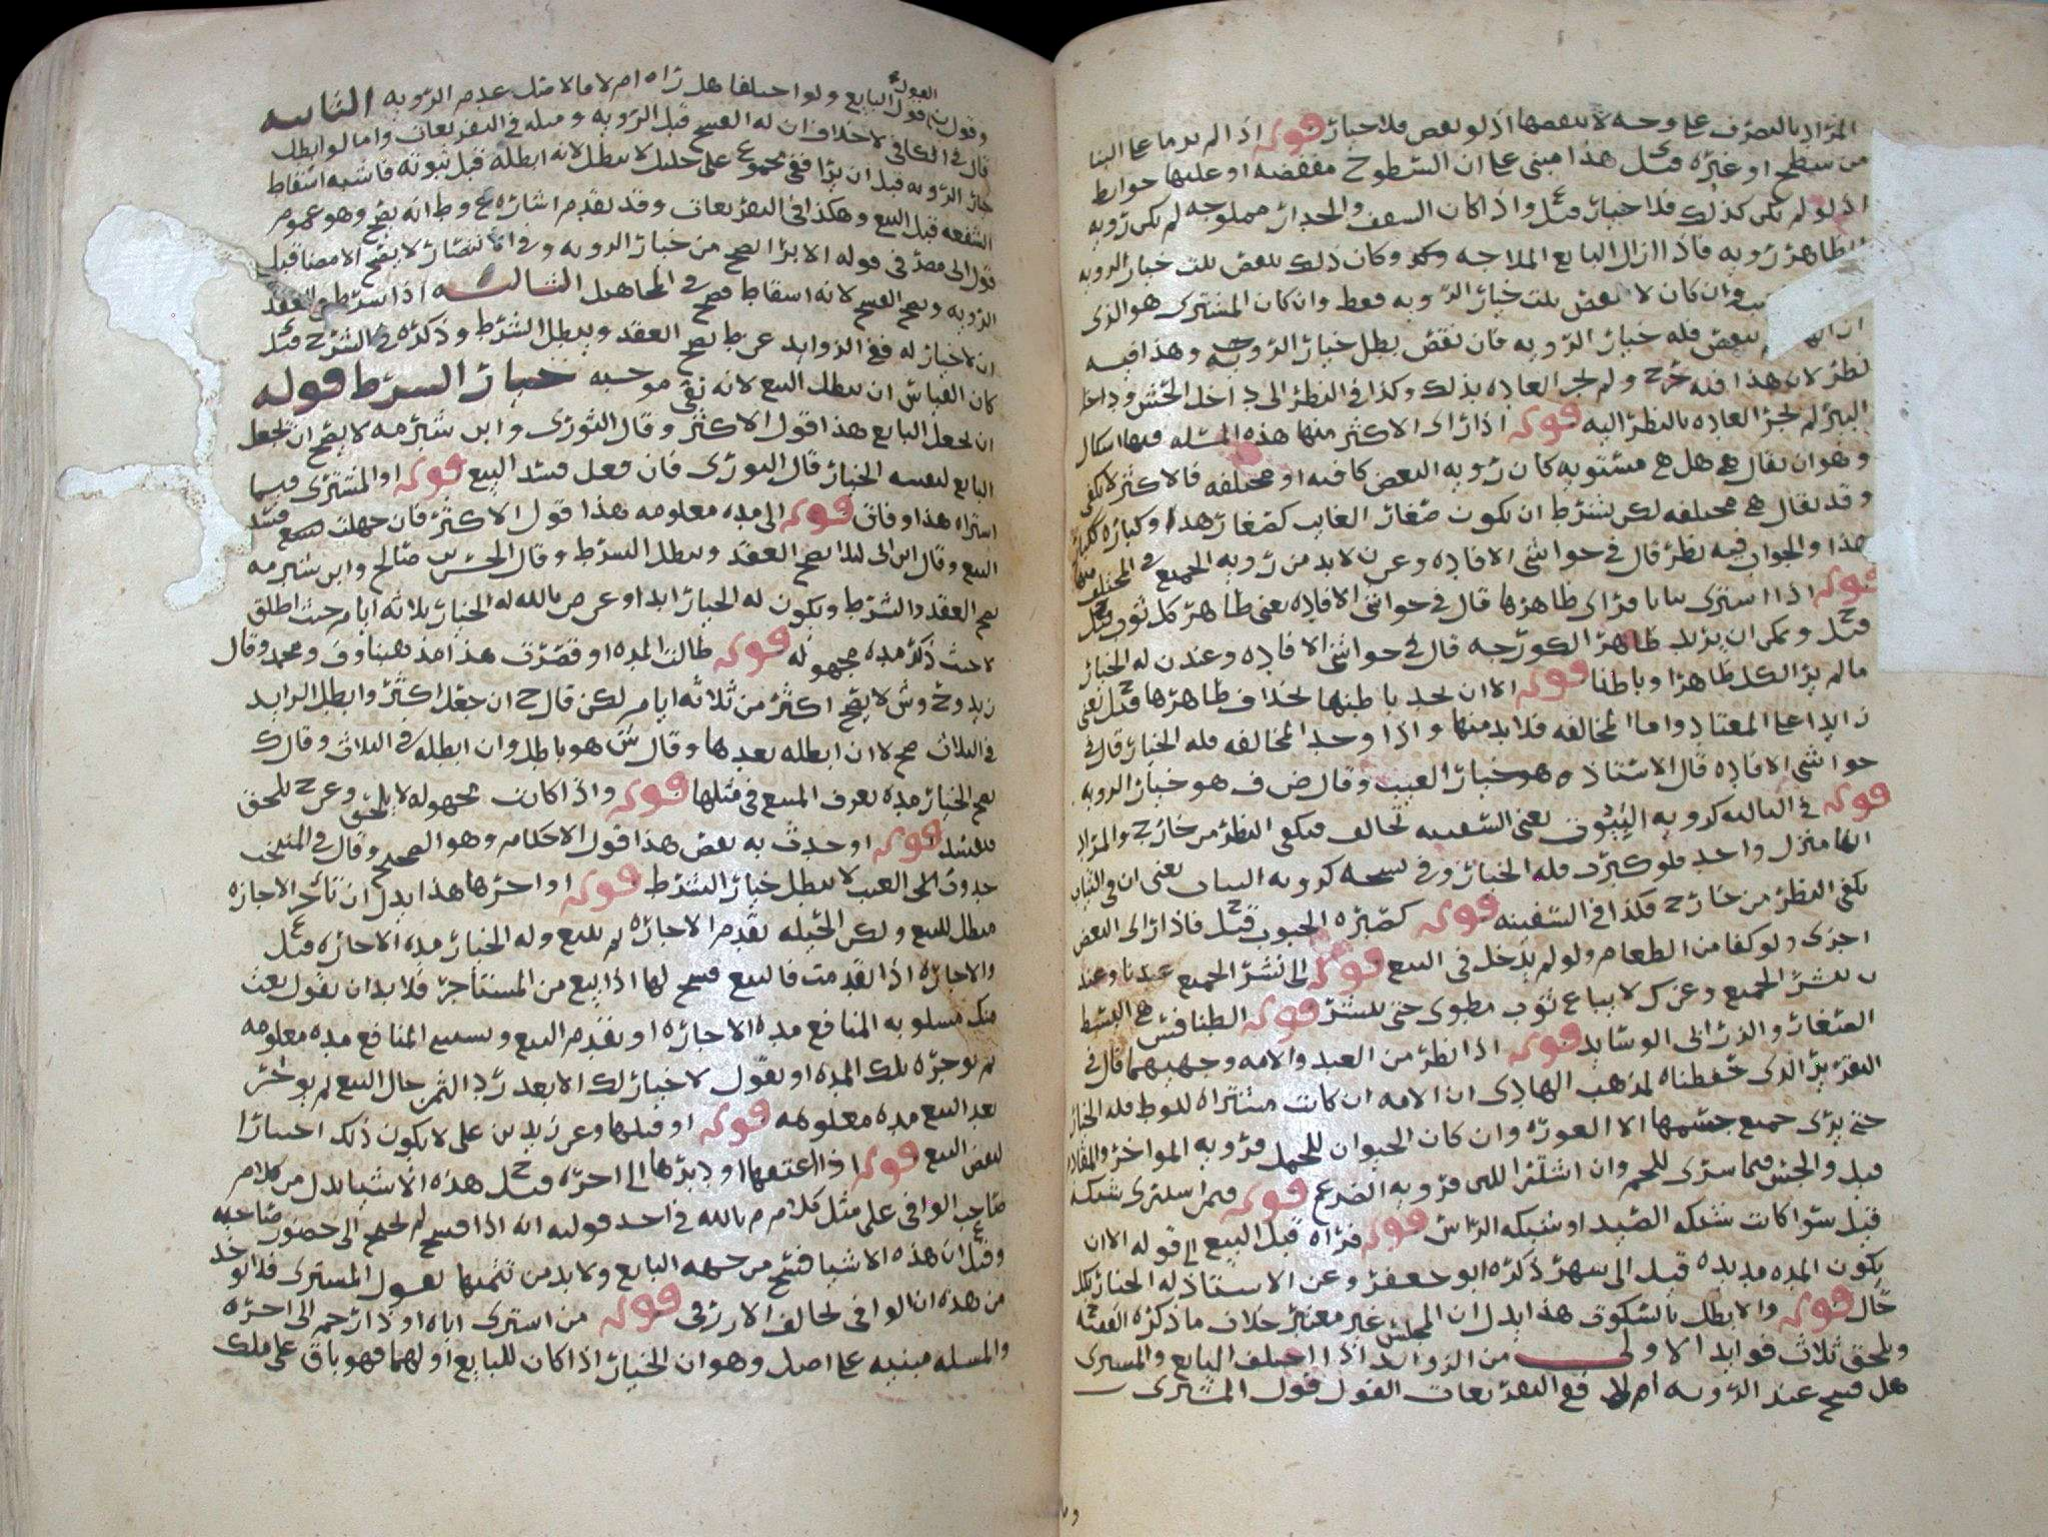 المراد بالتصرف على وجه لا ينقصها اذ لو نقص فلا خيار قوله اذا لم يرما على البنا
من سطح او غيره قيل هذا مبني على ان السطوح مفضضه او عليها حوايط
اذ لو لم تكن كذلك فلا خيار قيل واذا كان السقف والجدار مملوجه لم تكن رويه
الظاهر رويه فاذا ازال البايع الملاجه وكان ذلك بنقص ثلث خيار الرويه
وان كان لا بنقص ثلث خيار الرويه فقط وان كان المشتري هو الذي
بنقص فله خيار الرويه فان نقص بطل خيار الرويه وهذا فيه
نظر لان هذا فيه حرج ولم تجر العاده بذلك وكذا في النظر الى داخل الحش وداخل
البير لم تجر العاده بالنظر اليه قوله اذا راى الاكثر منها هذه المسله فيها اشكال
وهو ان يقال هي هل هي مستويه كان رويه البعض كافيه او مختلفه فالاكثر لا يكفي
وقد يقال هي مختلفه لكن بشرط ان يكون صغار الغايب كصغار هذا وكباره ككبار
هذا والجواب فيه نظر قال في حواشي الافاده وعن ن لا بد من رويه الجميع في المختلف
قوله اذا اشترى ثيابا فراى ظاهرها قال في حواشي الافاده يعني ظاهر كل ثوب
قيل ويمكن ان يريد ظاهر الكورجه قال في حواشي الافاده وعند ن له الخيار
ما لم ير الكل ظاهرا وباطنا قوله الا ان يجد باطنها بخلاف ظاهرها قيل يعني
زايدا على المعتاد واما المخالفه فلا بد منها واذا وجد المخالفه فله الخيار قال في
حواشي الافاده قال الاستاذ هو خيار العيب وقال ض ف هو خيار الرويه
قوله في الباليه كرويه البيوت يعني السفينه تخالف فيكفي النظر من خارج والمراد
انها منزل واحد فلو كبرت فله الخيار وفي نسخه كرويه الثياب يعني ان في الثياب
يكفي النظر من خارج فكذا في السفينه قوله كصبره الحبوب قيل فاذا راى البعض
اجزى ولو كفا من الطعام ولو لم يدخل في البيع قوله الى نشر الجميع عندنا وعند
ن ينشر الجميع وعن ك لا يباع ثوب مطوي حتى ينشر قوله الطنافس هي البسط
الصغار والذرابي الوسايد قوله اذا نظر من العبد والامه وجههما قال في
التقرير الذي حفظناه لمذهب الهادي ان الامه ان كانت مشتراه للوطي فله الخيار
حتى يرى جميع جسمها الا العوره وان كان الحيوان للحمل فرويه المواخر والمقادم
قيل والجس فيما شرى للحم وان اشترا للبن فرويه الضرع قوله فيمن اشترى شبكه
قيل سوا كانت شبكه الصيد او شبكه الراس قوله فراه قبل البيع الى قوله الا ان
يكون المده مديده قيل الى شهر ذكره ابو جعفر وعن الاستاذ له الخيار بكل
حال قوله والا بطل بالسكوت هذا يدل ان المجلس غير معتبر خلاف ما ذكره الفقيه
ويلحق ثلاث فوايد الاولى من الزوايد اذا اختلف البايع والمشتري
هل فسخ عند الرويه ام لا ففي التفريعات القول قول المشتري
القول
وقول ن قول البايع ولو اختلفا هل راه ام لا فالاصل عدم الرويه الثانيه
قال في الكافي لا خلاف ان له الفسخ قبل الرويه ومثله في التفريعات واما لو ابطل
خيار الرويه قبل ان يرا ففي مجموع علي خليل لا يبطل لانه ابطله قبل ثبوته فاشبه اسقاط
الشفعه قبل البيع وهكذا في التفريعات وقد تقدم اشاره وط انه يصح وهو عموم
قول ابي مضر في قوله الابرا يصح من خيار الرويه وفي الانتصار لا يصح الامضا قبل
الرويه ويصح الفسخ لانه اسقاط فصح في المجاهل الثالثه اذا شرط في العقد
ان لا خيار له ففي الزوايد عن ط يصح العقد ويبطل الشرط وذكره في الشرح قيل
كان القياس ان يبطل البيع لانه نفى موجبه خيار الشرط قوله
ان يجعل البايع هذا قول الاكثر وقال الثوري وابن شبرمه لا يصح ان يجعل
البايع لنفسه الخيار قال الثوري فان فعل فسد البيع قوله او المشتري فيما
اشتراه هذا وفاق قوله الى مده معلومه هذا قول الاكثر فان جهلت فسد
البيع وقال ابن ابي ليلى يصح العقد ويبطل الشرط وقال الحسن بن صالح وابن شبرمه
يصح العقد والشرط ويكون له الخيار ابدا وعن ص بالله له الخيار ثلاثه ايام حيث اطلق
لا حيث ذكر مده مجهوله قوله طالت المده او قصرت هذا مذهبنا وف ومحمد وقال
زيد وح وش لا يصح اكثر من ثلاثه ايام لكن قال ح ان جعل اكثر وابطل الزايد
في الثلاث صح لا ان ابطله بعدها وقال ش هو باطل وان ابطله في الثلاث وقال ك
يصح الخيار مده يعرف المبيع في مثلها قوله واذا كانت مجهوله لا يلحق وعن ح يلحق
فيفسد قوله او حدث به نقص هذا قول الاحكام وهو الصحيح وقال في المنتخب
حدوث العيب لا يبطل خيار الشرط قوله او اجرها هذا يدل ان تاخر الاجازه
مبطل للبيع ولكن الحيله تقدم الاجاره ثم للبيع وله الخيار مده الاجاره قيل
والاجاره اذا تقدمت فالبيع فسخ لها اذا بيع من المستاجر فلا بد ان يقول بعت
منك مسلوبه المنافع مده الاجاره او تقدم البيع ويستثني المنافع مده معلومه
ثم يوجره تلك المده او يقول لا خيار لك الا بعد رد الثمن حال البيع ثم يواجر
بعد البيع مده معلومه قوله او قبلها وعن زيد بن علي لا يكون ذلك اختيارا
لنقض البيع قوله اذا اعتقها او دبرها الى اخره قيل هذه الاشيا يدل من كلام
صاحب الوافي على مثل كلام م بالله في احد قوليه انه اذا فسخ لم يحتج الى حضور صاحبه
وقيل ان هذه الاشيا فسخ من جهه البايع ولا بد من تتميمها بقبول المشتري فلا يوخذ
من هذه ان الوافي يخالف الازرقي قوله من اشترى اباه او ذا رحم الى اخره
والمسله مبنيه على اصل وهو ان الخيار اذا كان للبايع او لهما فهو باق على ملك